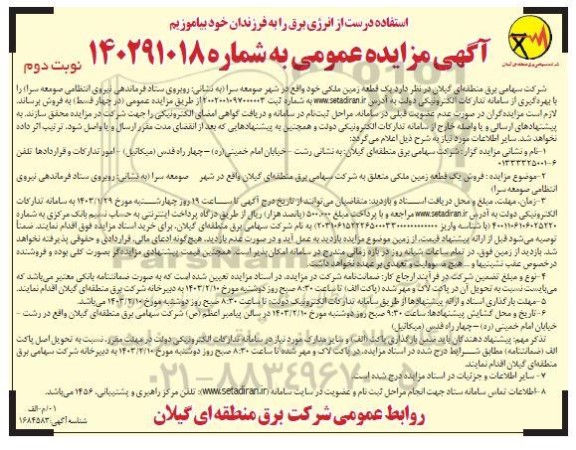 استفاده درست از انرژی برق را به فرزندان خود بیاموزیم
آگهی مزایده عمومی به شماره ۱۴۰۲۹۱۰۱۸
نوبت دوم
شرکت سهامی برق منطقه ای گیلان
شرکت سهامی برق منطقه‌ای گیلان در نظر دارد یک قطعه زمین ملکی خود واقع در شهر صومعه سرا (به نشانی: روبروی ستاد فرماندهی نیروی انتظامی صومعه سرا) را
با بهره‌گیری از سامانه تدارکات الکترونیکی دولت به آدرس www.setadiran.ir به شماره ثبت از طریق مزایده عمومی (در چهار قسط) به فروش برساند.
لازم است مزایده‌گران در صورت عدم عضویت قبلی در سامانه، مراحل ثبت‌نام در سامانه و دریافت گواهی امضای الکترونیکی را جهت شرکت در مزایده محقق سازند. به
پیشنهادهای ارسالی و یا واصله خارج از سامانه تدارکات الکترونیکی دولت و همچنین به پیشنهادهایی که بعد از انقضای مدت مقرر ارسال و یا واصل شود، ترتیب اثر داده
نخواهد شد. سایر اطلاعات مورد نیاز به شرح ذیل اعلام می‌گردد:
۱- نام و نشانی مزایده گزار: شرکت سهامی برق منطقه‌ای گیلان: به نشانی رشت - خیابان امام خمینی (ره) - چهار راه قدس (میکائیل) - امور تدارکات و قراردادها تلفن
۲- موضوع مزایده: فروش یک قطعه زمین ملکی متعلق به شرکت سهامی برق منطقه‌ای گیلان واقع در شهر صومعه سرا (به نشانی: روبروی ستاد فرماندهی نیروی
انتظامی صومعه سرا)
۳- زمان، مهلت، مبلغ و محل دریافت اسناد و بازدید: متقاضیان می‌توانند از تاریخ درج آگهی تا ساعت ۱۹ روز چهارشنبه مورخ ۱۴۰۳/۱/۲۹ به سامانه تدارکات
الکترونیکی دولت به آدرس www.setadiran.ir مراجعه و با پرداخت مبلغ ۵۰۰.۰۰۰ (پانصد هزار) ریال از طریق درگاه پرداخت اینترنتی به حساب نسیم بانک مرکزی به شماره
به نام شرکت سهامی برق منطقه‌ای گیلان، برای خرید اسناد مزایده فوق اقدام نمایند. ضمناً
توصیه می‌شود قبل از ارائه پیشنهاد قیمت، از زمین موضوع مزایده بازدید به عمل آید و در صورت عدم بازدید، هیچگونه ادعای مالی، قراردادی و حقوقی پذیرفته نخواهد
شد. بازدید از زمین فوق، در تمام ساعات شبانه روز در بازه زمانی مندرج در سامانه امکان پذیر است. همچنین قیمت پیشنهادی مزایده‌گر بصورت کلی بوده و فروشنده
درخصوص عقب نشینیها و هیچ مسوولیت و تعهدی بر عهده نخواهد داشت.
۴- نوع و مبلغ تضمین شرکت در فرآیند ارجاع کار: ضمانتنامه شرکت در مزایده، در اسناد مزایده تعیین شده است که به صورت ضمانتنامه بانکی معتبر می‌باشد که
می‌بایست نسبت به تحویل آن در پاکت لاک و مهر شده (پاکت الف) تا ساعت ۸:۳۰ صبح روز دوشنبه مورخ ۱۴۰۳/۲/۱۰ به دبیرخانه شرکت برق منطقه‌ای گیلان اقدام نمایند.
۵- مهلت بارگذاری اسناد و ارائه پیشنهادها از طریق سامانه تدارکات الکترونیک دولت: تا ساعت ۸:۳۰ صبح روز دوشنبه مورخ ۱۴۰۳/۲/۱۰ می‌باشد.
۶- تاریخ و محل گشایش پیشنهادها: ساعت ۹:۳۰ صبح روز دوشنبه مورخ ۱۴۰۳/۲/۱۰ در سالن پیامبر اعظم (ص) شرکت سهامی برق منطقه‌ای گیلان واقع در رشت -
خیابان امام خمینی (ره) - چهار راه قدس (میکائیل)
تذکر مهم: پیشنهاد دهندگان باید ضمن بارگذاری پاکت (الف) و سایر مدارک مورد نیاز در سامانه تدارکات الکترونیکی دولت در مهلت مقرر، نسبت به تحویل اصل پاکت
الف (ضمانتنامه) مطابق شرایط درج شده در اسناد مزایده، در پاکت لاک و مهر شده تا ساعت ۸:۳۰ صبح روز دوشنبه مورخ ۱۴۰۳/۲/۱۰ به دبیرخانه شرکت سهامی برق
منطقه‌ای گیلان اقدام نمایند.
۷- سایر اطلاعات و جزئیات در اسناد مزایده درج شده است.
۸- اطلاعات تماس سامانه ستاد جهت انجام مراحل ثبت نام و عضویت در سایت سامانه (www.setadiran.ir): تلفن مرکز راهبری و پشتیبانی، ۱۴۵۶ می‌باشد.
روابط عمومی شرکت برق منطقه ای گیلان
۱۰۱/م-الف
شناسه آگهی: ۱۶۸۴۵۸۳
۰۲۱-۸۸۳۴۹۶۷۰